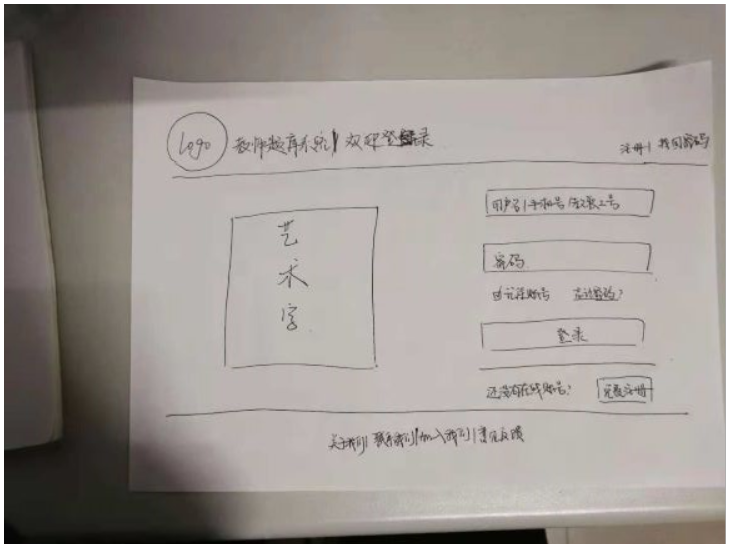 Logo 教师题库系统 | 欢迎登录
注册 | 找回密码
艺
术
字
用户名 | 手机号
密码
忘记密码?
登录
还没有在线账号? 免费注册
关于我们 | 联系我们 | 加入我们 | 意见反馈